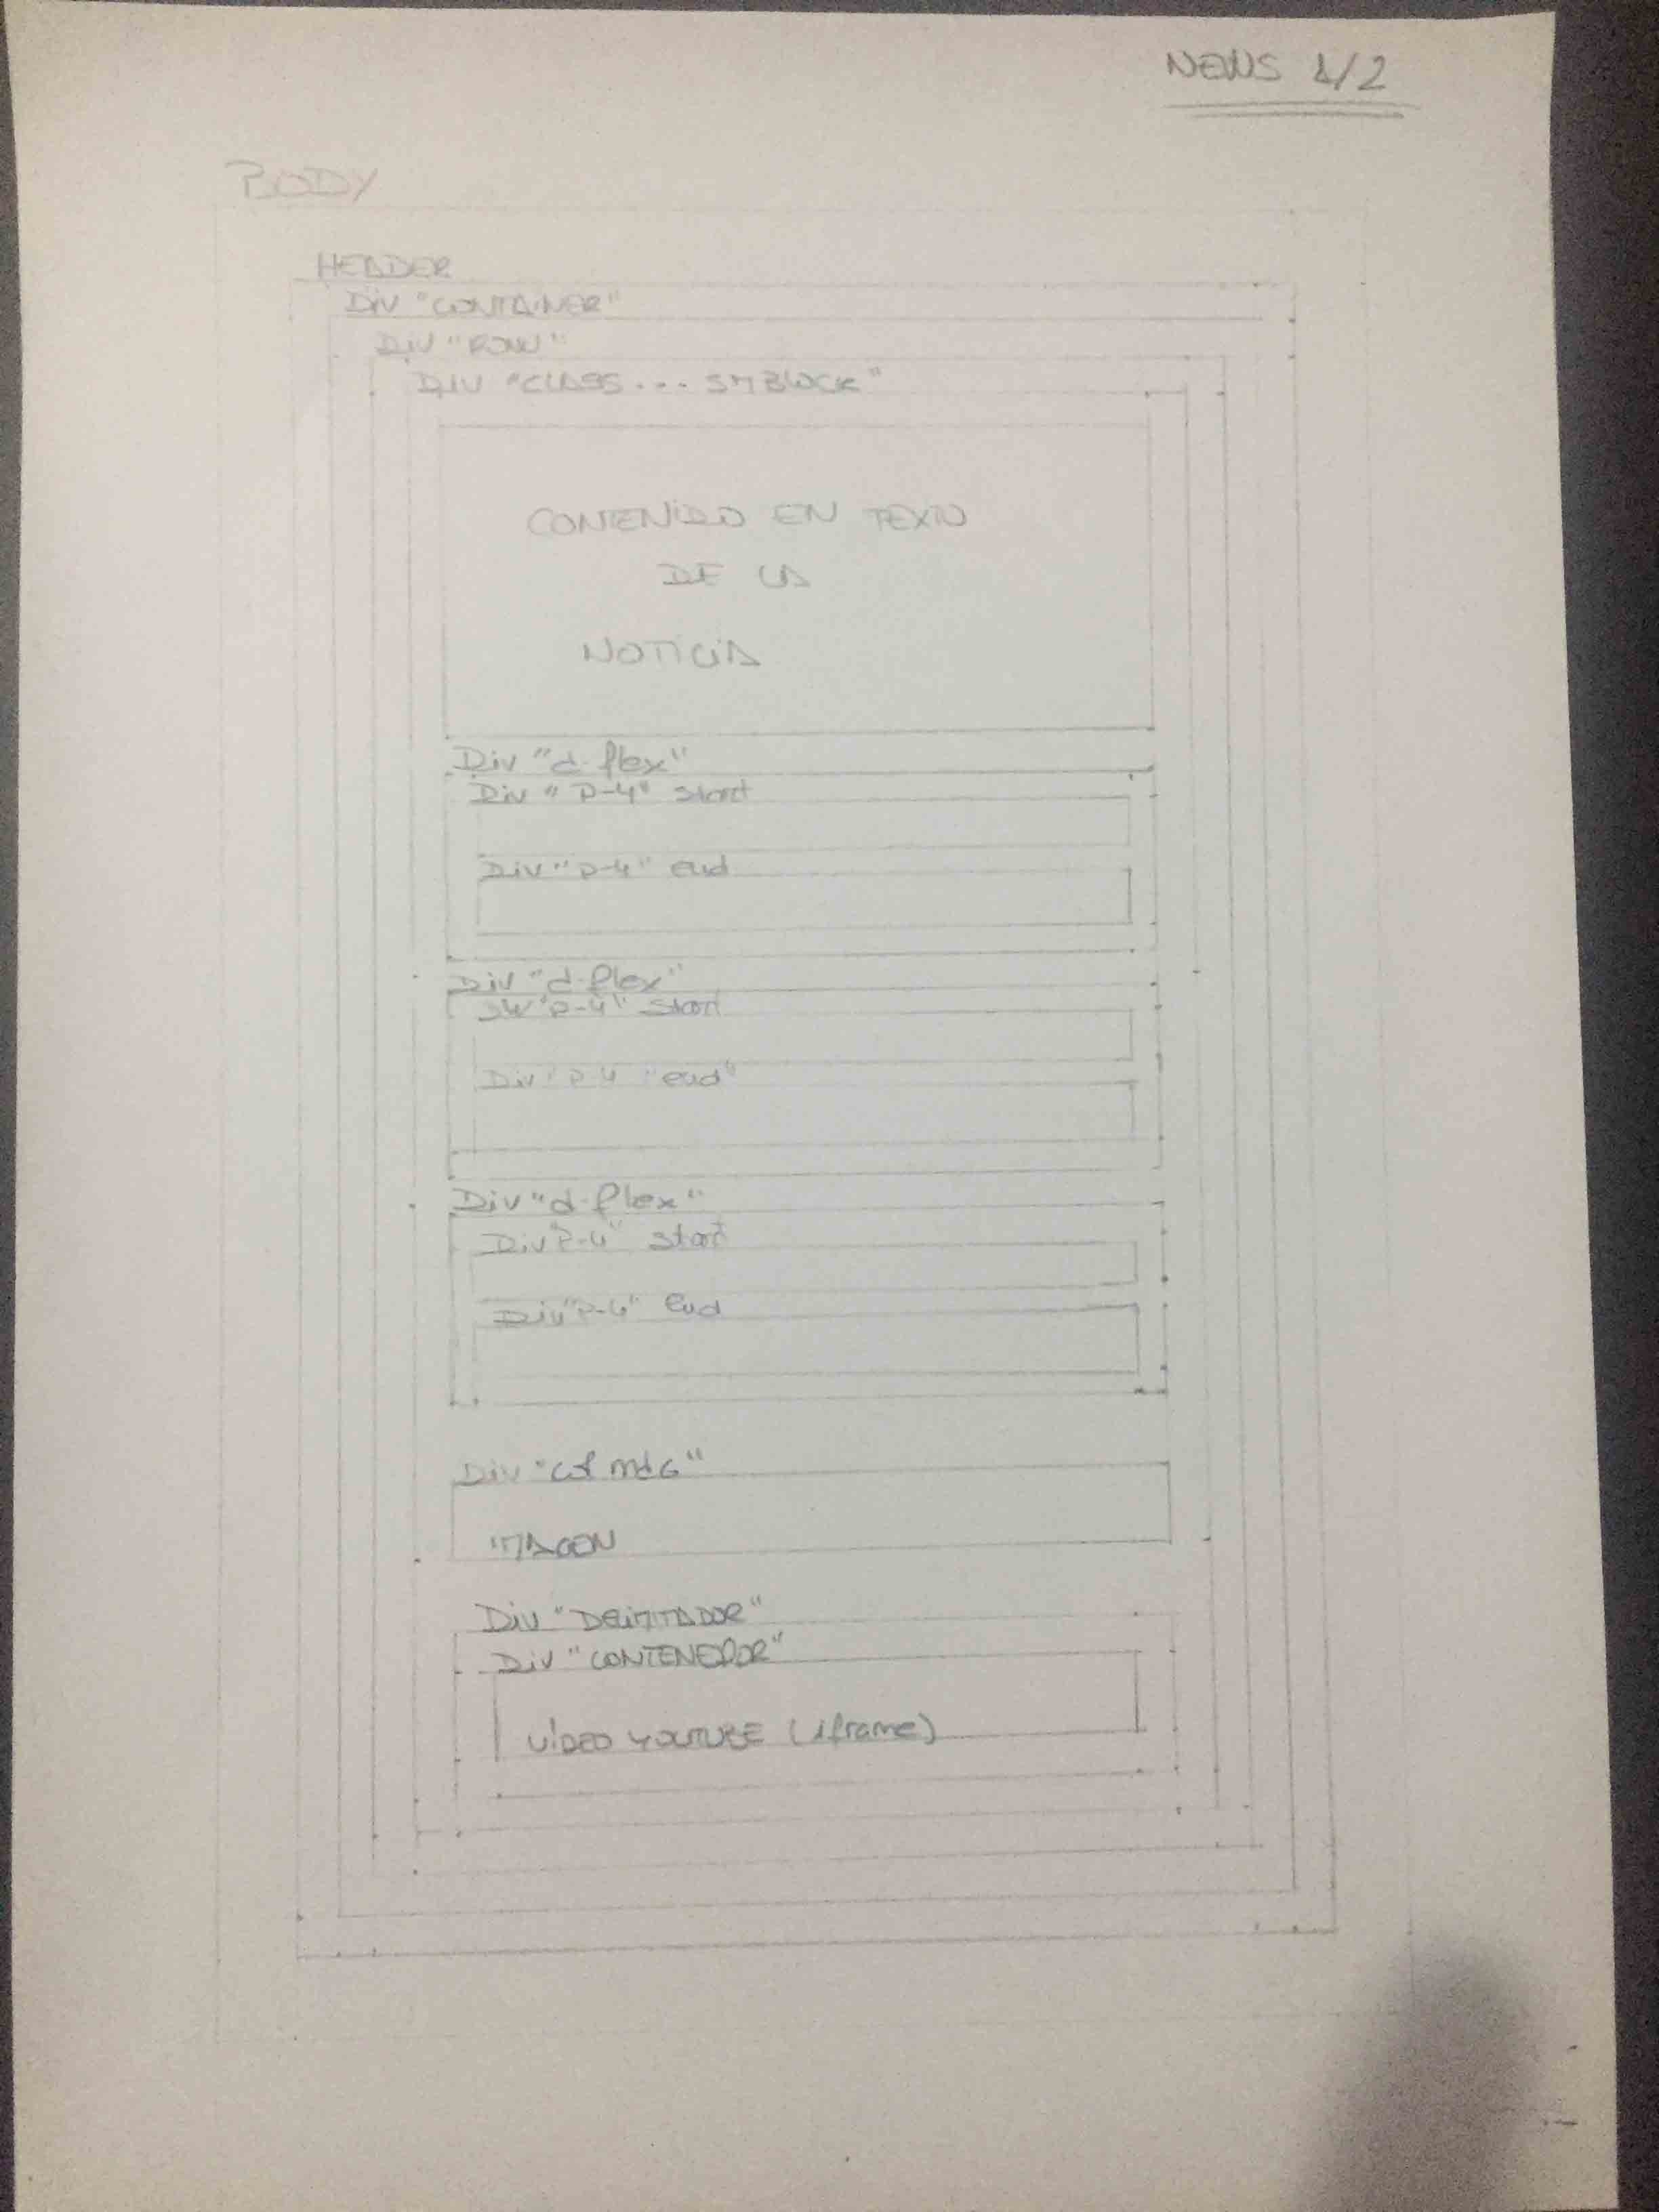 NEWS 1/2
BODY
HEADER
Div "CONTAINER"
Div "ROW"
DIV "CLASS... SM BLOCK"
CONTENIDO EN TEXTO
DE LA
NOTICIA
Div "d-flex"
Div "P-4" start
Div "P-4" end
Div "d-flex"
Div "P-4" start
Div "P-4 "end"
Div "d-flex"
Div P-4" start
Div "P-4" end
Div "col md6"
IMAGEN
Div "DELIMITADOR"
Div "CONTENEDOR"
VIDEO YOUTUBE (iframe)